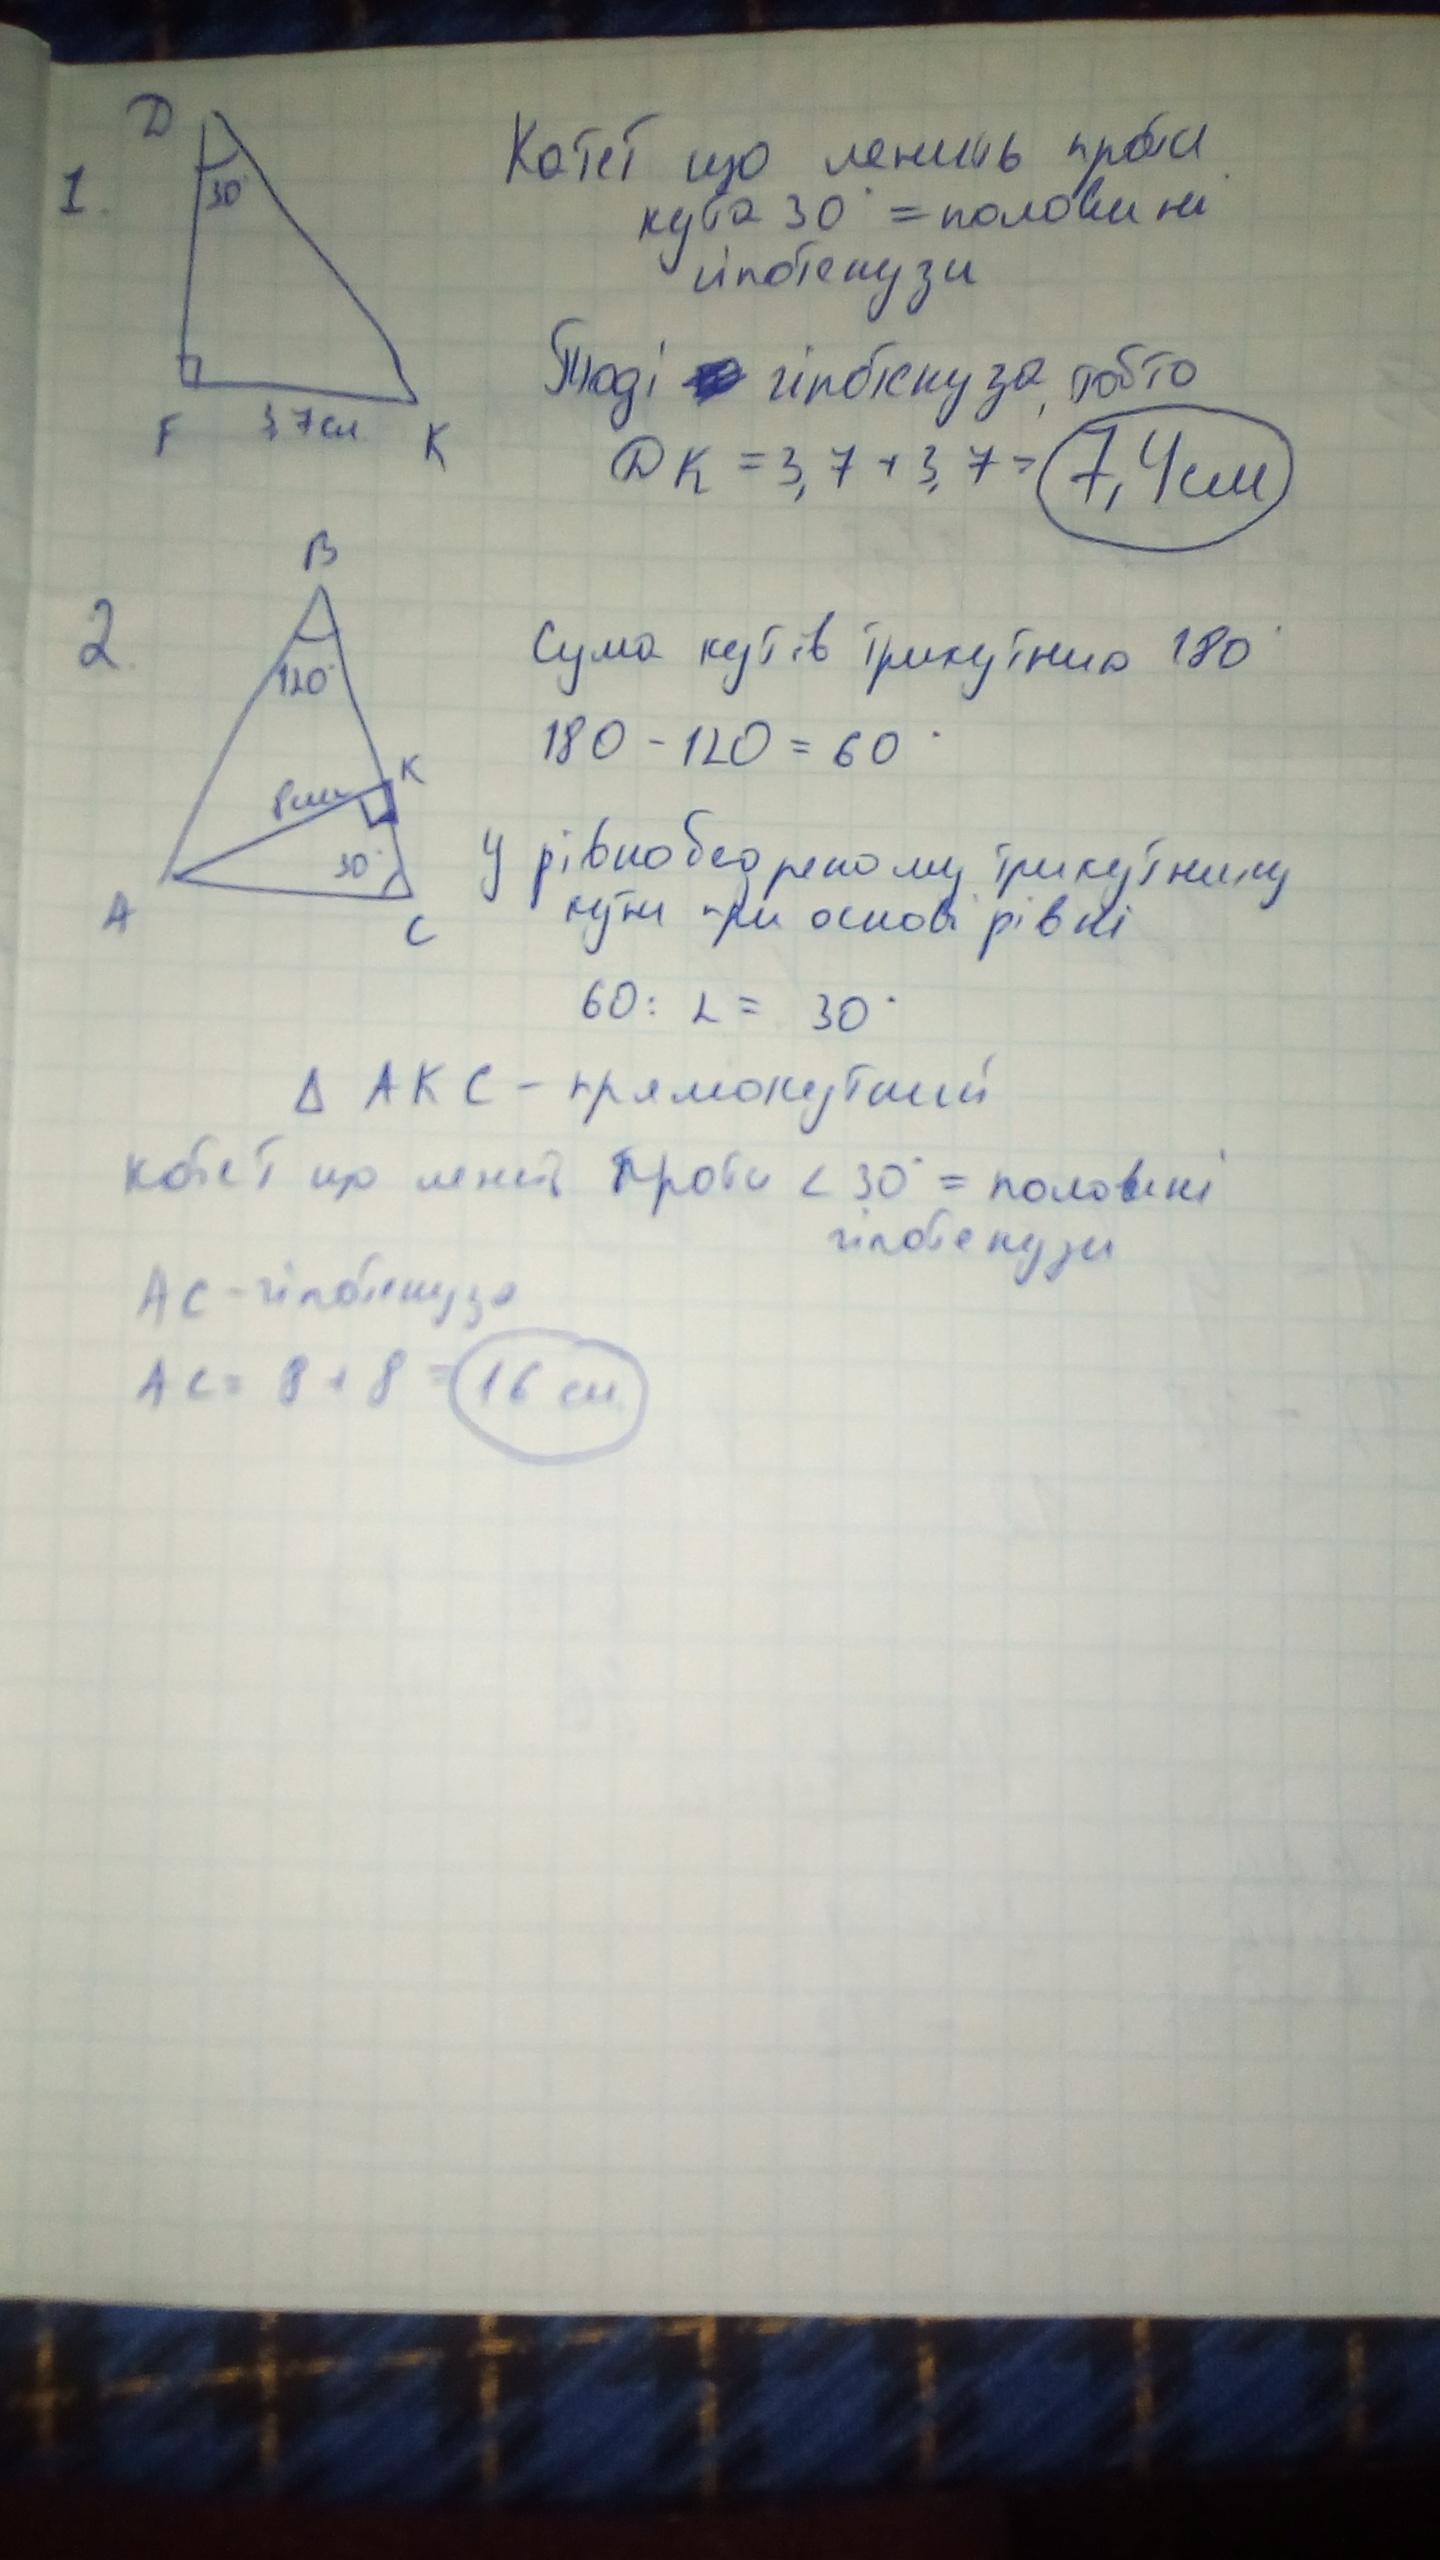 1.
D
30°
F
3,7см
K
Катет що лежить проти
кута 30° = половині
гіпотенузи
Тоді гіпотенуза, тобто
DK = 3,7 + 3,7 = 7,4см
2.
B
120°
K
8см
30°
A
C
Сума кутів трикутника 180°
180 - 120 = 60°
У рівнобедреному трикутнику
кути при основі рівні
60 : 2 = 30°
Δ AKC - прямокутний
Катет що лежить проти < 30° = половині
гіпотенузи
AC - гіпотенуза
AC = 8 + 8 = 16 см